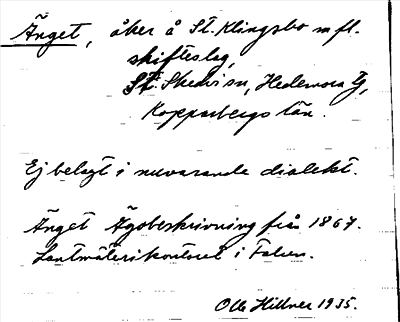 Änget, åker å St. Klingsbo m fl.
skifteslag,
St. Skedvi sn, Hedemora Tg,
Kopparbergs län.
Ej belagt i nuvarande dialekt.
Änget Ägobeskrivning från 1867.
Lantmäterikontoret i Falun.
Olle Hillner 1935.